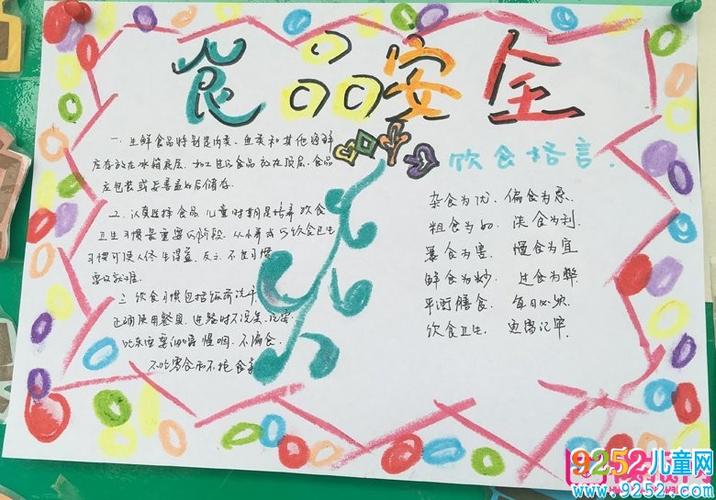 食品安全
一、生鲜食品特别是肉类、鱼类和其他海鲜
应存放在冰箱底层，加工过的食品放在顶层，食品
应包装或是盖好后储存。
二、认真选择食品 儿童时期是培养饮食
卫生习惯最重要的阶段，从小养成
习惯可使人终生得益，反之，不良习惯
三、饮食习惯包括饭前洗手、
正确使用餐具、进餐时不说笑、
吃东西要细嚼慢咽、不偏食、
不吃零食
饮食格言
杂食为优，偏食为忌，
粗食为好，淡食为利，
暴食为害，慢食为宜
鲜食为妙，过食为弊
平衡膳食，每日必须
饮食卫生，更需记牢
9252儿童网
www.9252.com